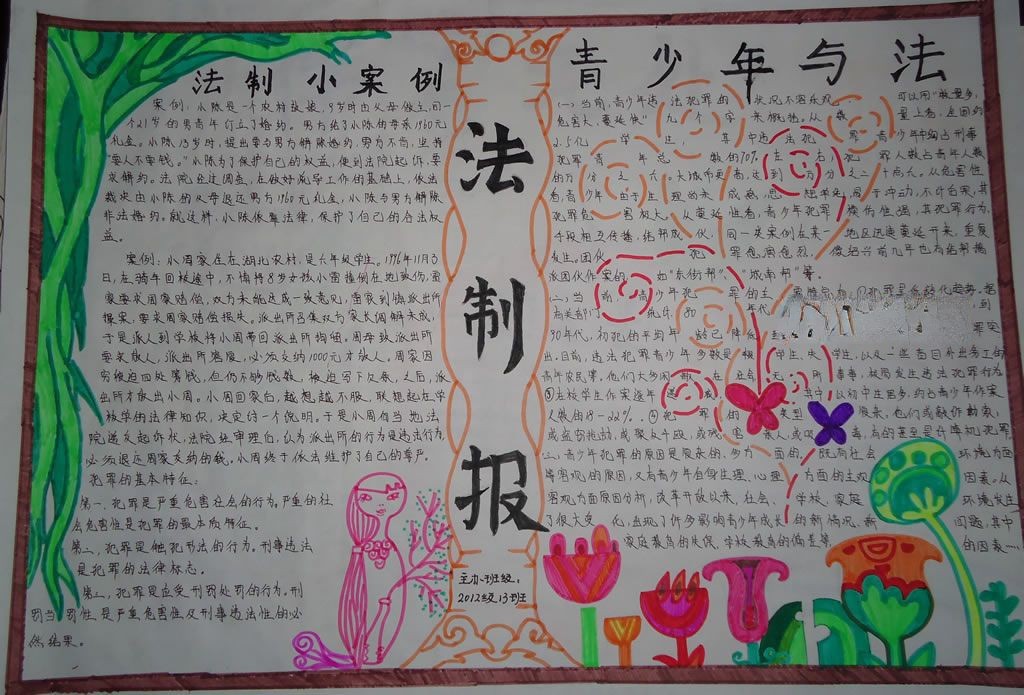 法制小案例
案例:小陈是一个农村姑娘,9岁时由父母做主,同一
个21岁的男青年订立了婚约。男方给了小陈的母亲1960元
礼金。小陈15岁时,提出要与男方解除婚约,男方不肯,坚持
"要人不要钱。"小陈为了保护自己的权益,便到法院起诉,要
求解约。法院经过调查,在做好疏导工作的基础上,依法
裁决由小陈的父母退还男方1960元礼金,小陈与男方解除
非法婚约。就这样,小陈依靠法律,保护了自己的合法权
益。
案例:小周家住在湖北农村,是六年级学生。1996年11月3
日,在骑车回校途中,不慎将8岁女孩小雷撞倒在地致伤,雷
家要求周家赔偿,双方未能达成一致意见,雷家到镇派出所
报案,要求周家赔偿损失,派出所召集双方家长调解未成,
于是派人到学校将小周带回派出所拘留。周母找派出所
要求放人,派出所答应,必须交纳1000元才放人。周家因
穷被迫四处筹钱,但仍不够钱数,被迫写下欠条,之后,派
出所才放出小周。小周回家后,越想越不服,联想起在学
校学的法律知识,决定讨一个说明。于是小周向当地法
院递交起诉状,法院经审理后,认为派出所的行为是违法行为,
必须退还周家交纳的钱。小周终于依法维护了自己的尊严。
犯罪的基本特征:
第一,犯罪是严重危害社会的行为,严重的社
会危害性是犯罪的最本质特征。
第二,犯罪是触犯刑法的行为。刑事违法
是犯罪的法律标志。
第三,犯罪是应受刑罚处罚的行为。刑
罚当罚性是严重危害性及刑事违法性的必
然结果。
法
制
报
主办班级:
2012级13班
青少年与法
(一)当前,青少年违法犯罪的状况不容乐观,可以用"数量多,
危害大,蔓延快"九个字来概括。从数量上看,全国约
2.5亿学生,其中违法犯青少年中约占刑事
犯罪青年总数的70%左右,犯罪人数占青年人数
的万分之六。大城市更高,达到万分之二十点六。从危害性
看,青少年由于生理的未成熟,思想单纯,易于冲动,不计后果,其
犯罪危害极大。从蔓延性看,青少年犯罪模仿性强,其犯罪行为,
手段相互传播,结帮成伙,同一类案例在某一地区迅速蔓延开来,重复
发生。团伙犯罪愈演愈烈。像绍兴前几年也有结帮搞
派团伙作案的,如"东街帮"、"城南帮"等。
(二)当前,青少年犯罪的主要
有关部门统计,80年代
90年代,初犯的平均年龄已降低罪突
出。目前,违法犯罪青少年多数是在校学生、失学生,以及一些盲目外出务工的
青年农民等。他们大多闲散在社会,无所事事,极易发生违法犯罪行为
③在校学生作案逐年其中以初中生居多,约占青少年作案
人数的18-22%。④犯罪的类型
或盗窃抢劫,或聚众斗殴,或残害亲人或吸毒,有的甚至是计算机犯罪
(三)青少年犯罪的原因是复杂的,多方面的,既有社会环境方面
等客观的原因,又有青少年自身生理、心理方面的主观因素。从
客观方面原因分析,改革开放以来,社会、学校、家庭环境发生
了很大变化,出现了许多影响青少年成长的新情况、新问题,其中
家庭教育的失误、学校教育的偏差等的因素……